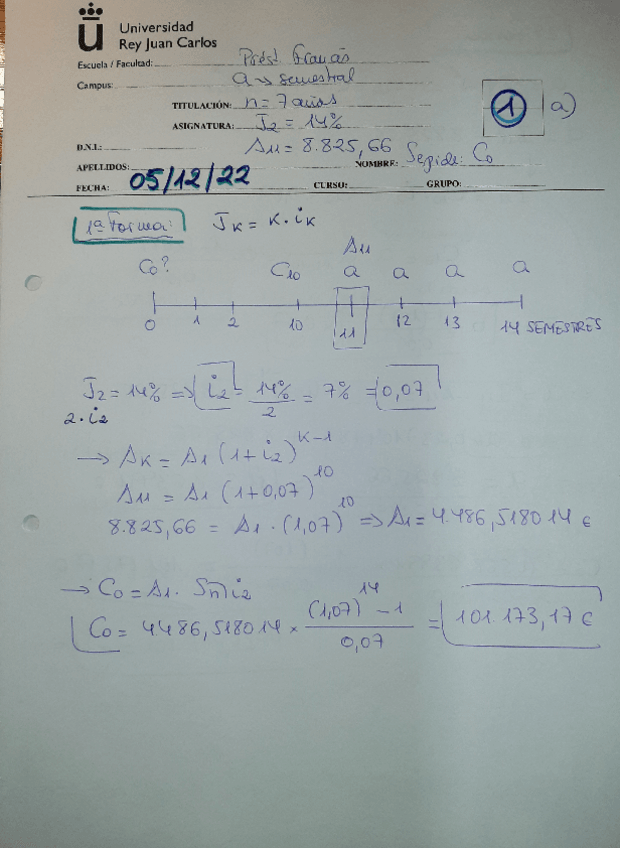 Universidad
Rey Juan Carlos
Escuela / Facultad: Prést. Francés
Campus: a → semestral
TITULACIÓN: n = 7 años
1 a)
ASIGNATURA: J2 = 14%
D.N.I.: A11 = 8.825,66
APELLIDOS: NOMBRE: Se pide: C0
FECHA: 05/12/22 CURSO: GRUPO:
1ª Forma: JK = K · iK
A11
C0? C10 a a a a
0 1 2 10 11 12 13 14 SEMESTRES
J2 = 14% ⇒ i2 = 14%/2 = 7% = 0,07
2·i2
→ AK = A1 (1+i2)^K-1
A11 = A1 (1+0,07)^10
8.825,66 = A1 · (1,07)^10 ⇒ A1 = 4.486,518014 €
→ C0 = A1 · Sn̅|i2
C0 = 4486,518014 × (1,07)^14 - 1 / 0,07 = 101.173,17 €